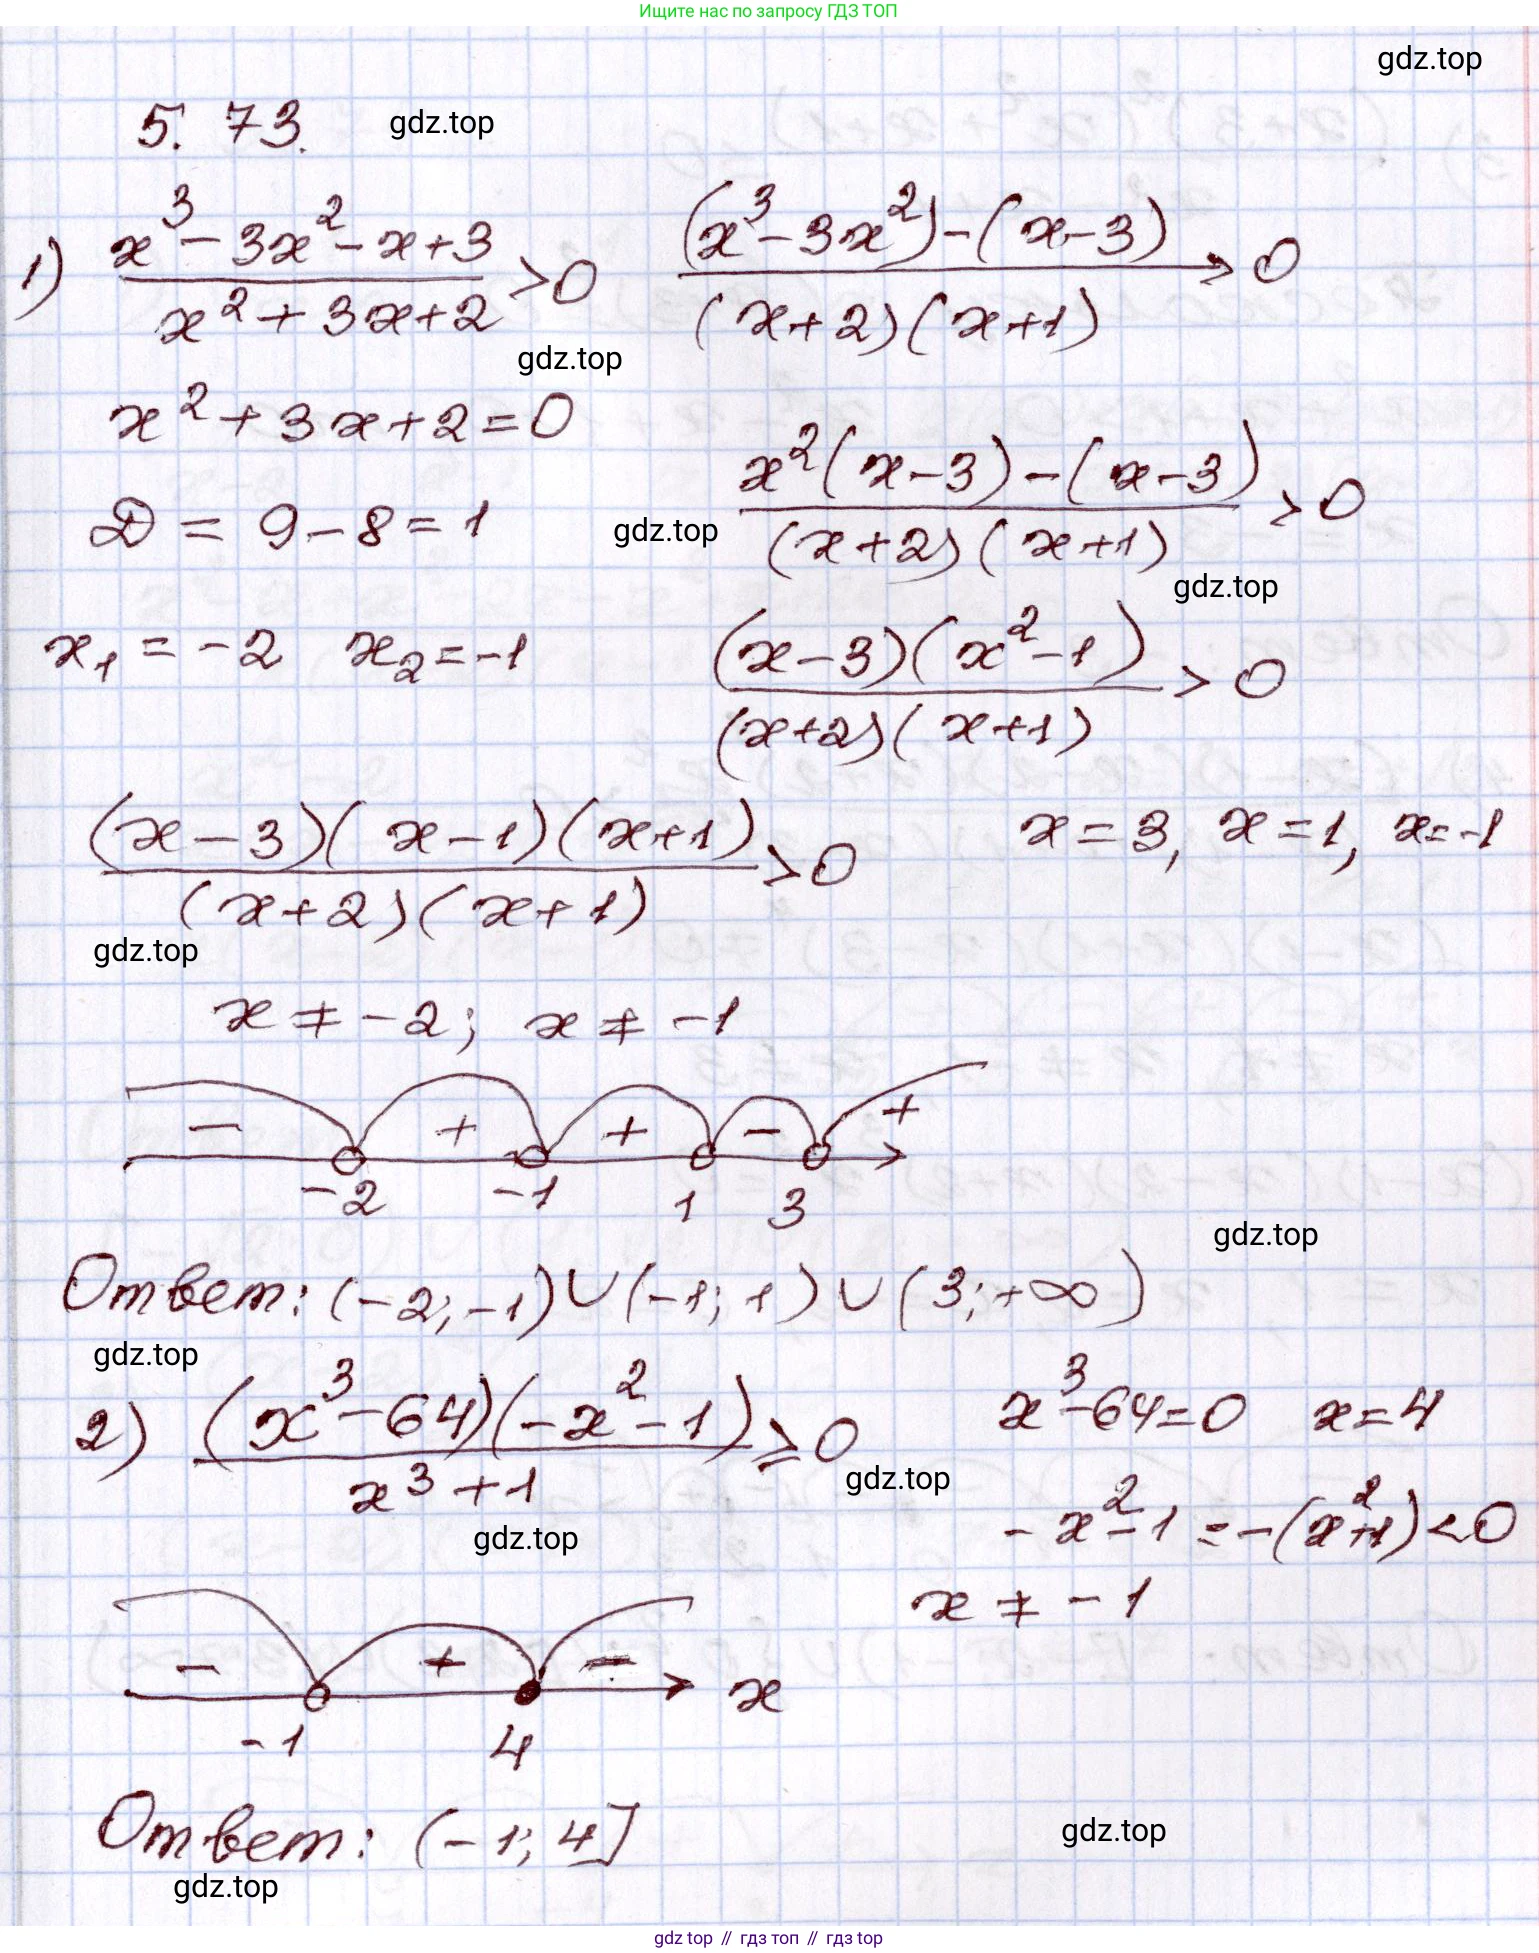 Ищите нас по запросу ГДЗ ТОП
gdz.top
5.73. gdz.top
1) (x³ - 3x² - x + 3)/(x² + 3x + 2) > 0   ((x³ - 3x²) - (x - 3))/((x + 2)(x + 1)) > 0
gdz.top
x² + 3x + 2 = 0
(x²(x - 3) - (x - 3))/((x + 2)(x + 1)) > 0
D = 9 - 8 = 1 gdz.top
gdz.top
x₁ = -2 x₂ = -1   ((x - 3)(x² - 1))/((x + 2)(x + 1)) > 0
((x - 3)(x - 1)(x + 1))/((x + 2)(x + 1)) > 0   x = 3, x = 1, x = -1
gdz.top
x ≠ -2; x ≠ -1
- + + - +
-2 -1 1 3
gdz.top
Ответ: (-2; -1) ∪ (-1; 1) ∪ (3; +∞)
gdz.top
2) ((x³ - 64)(-x² - 1))/(x³ + 1) ≥ 0   x³ - 64 = 0 x = 4
gdz.top
gdz.top
-x² - 1 = -(x² + 1) < 0
x ≠ -1
- + - x
-1 4
Ответ: (-1; 4]
gdz.top
gdz.top
gdz top // гдз топ // гдз top